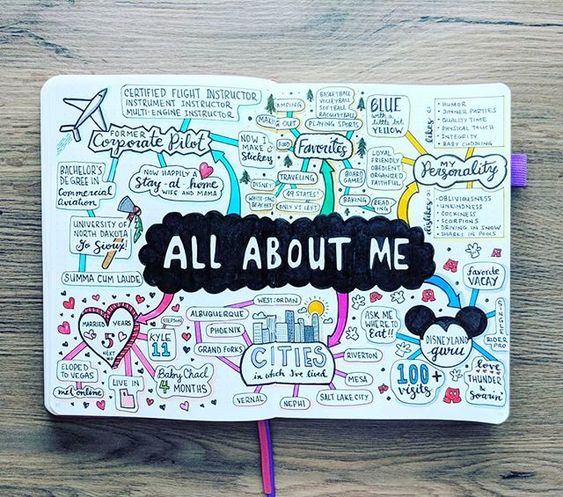 ALL ABOUT ME
CERTIFIED FLIGHT INSTRUCTOR
INSTRUMENT INSTRUCTOR
MULTI-ENGINE INSTRUCTOR
FORMER
Corporate Pilot
BACHELOR'S
DEGREE IN
COMMERCIAL
AVIATION
UNIVERSITY
OF NORTH
DAKOTA
Go Sioux!
SUMMA CUM LAUDE
NOW HAPPILY A
Stay-at-home
WIFE AND MAMA
NOW I
MAKE
Stickers
Favorites
CAMPING
MAKING
OUT
FOOD
BASKETBALL
VOLLEYBALL
SOFTBALL
RACQUETBALL
PLAYING SPORTS
TRAVELING
DISNEY
49 STATES
ONLY VT LEFT
WHITE SAND
BEACHES
BOARD
GAMES
BAKING
READING
BLUE
with a
little bit
YELLOW
LOYAL
FRIENDLY
OBEDIENT
ORGANIZED
FAITHFUL
MY
Personality
likes:
• HUMOR
• DINNER PARTIES
• QUALITY TIME
• PHYSICAL TOUCH
• INTEGRITY
• BABY CHUBBING
dislikes:
• OBLIVIOUSNESS
• UNKINDNESS
• COCKINESS
• SCORPIONS
• DRIVING IN SNOW
• SHARKS IN POOLS
MARRIED
5
YEARS
NEXT
ELOPED
TO VEGAS
met online
LIVE IN
STEPSON
KYLE
11
Baby Chail
4 MONTHS
CITIES
in which I've lived
WEST JORDAN
ALBUQUERQUE
PHOENIX
GRAND FORKS
VERNAL
NEPHI
SALT LAKE CITY
MESA
RIVERTON
DISNEYLAND
guru
ASK ME
WHERE TO
EAT!!
100+
visits
favorite
VACAY
SINGLE
RIDER
PRO
love
THUNDER
& Soarin'